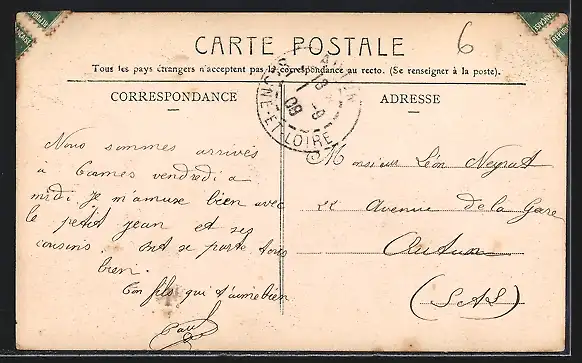 6
CARTE POSTALE
Tous les pays étrangers n'acceptent pas la correspondance au recto. (Se renseigner à la poste).
CORRESPONDANCE
ADRESSE
SAONE-ET-LOIRE
Nous sommes arrivés
à Cannes vendredi a
midi je m'amuse bien avec
le petit jean et ses
cousins. ont se porte tous
bien.
Ton fils qui t'aime bien
Paul
Monsieur Léon Neyrat
22 Avenue de la Gare
Autun
(S. & L.)